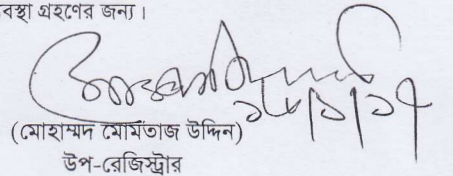 বস্থা গ্রহণের জন্য।
১৮/১/১৭
(মোহাম্মদ মোমতাজ উদ্দিন)
উপ-রেজিস্ট্রার